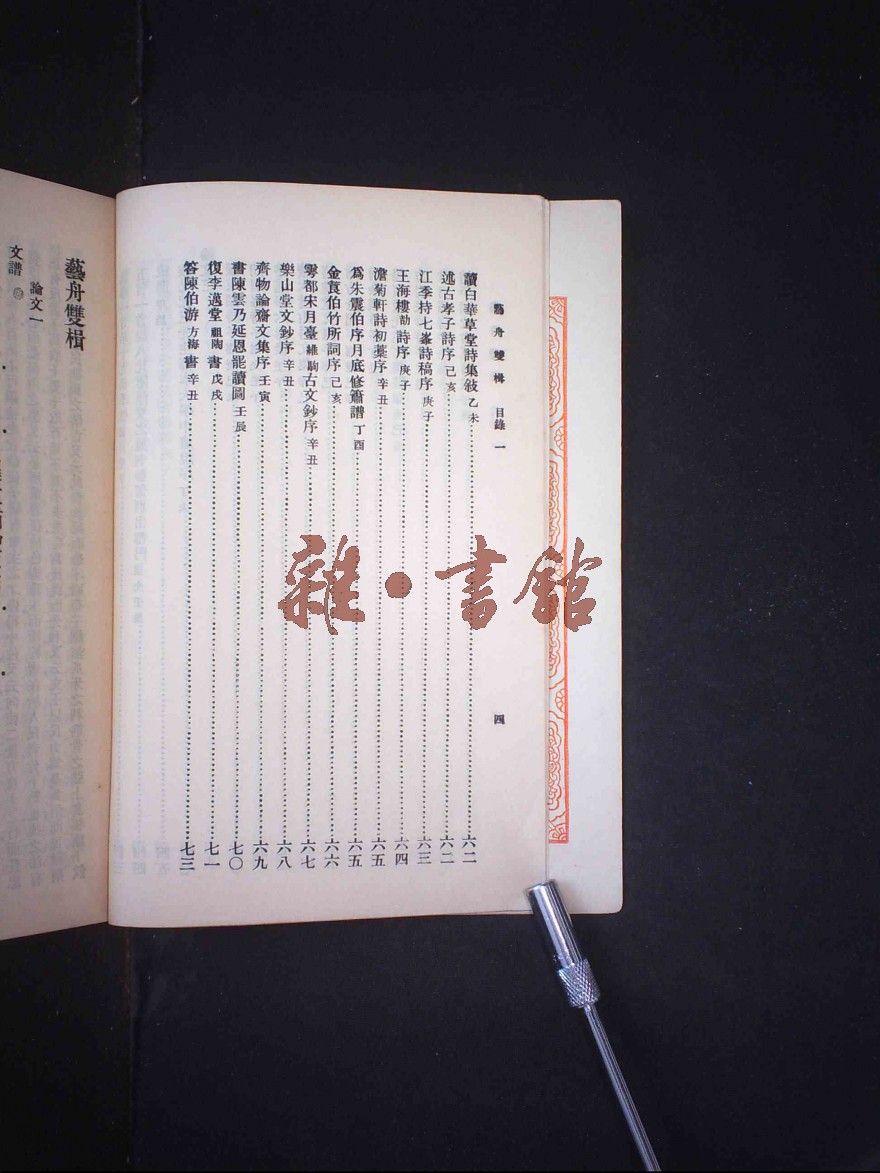 藝舟雙楫 目錄一 四
讀白華草堂詩集敍 乙未 六二
述古孝子詩序 己亥 六二
江季持七峯詩稿序 庚子 六三
王海樓 劼 詩序 庚子 六四
澹菊軒詩初藁序 辛丑 六五
爲朱震伯序月底修簫譜 丁酉 六五
金筤伯竹所詞序 己亥 六六
雩都宋月臺 維駒 古文鈔序 辛丑 六七
樂山堂文鈔序 辛丑 六八
齊物論齋文集序 壬寅 六九
書陳雲乃延恩罷讀圖 壬辰 七〇
復李邁堂 祖陶 書 戊戌 七一
答陳伯游 方海 書 辛丑 七三
藝舟雙楫
論文一
文譜
雜·書館